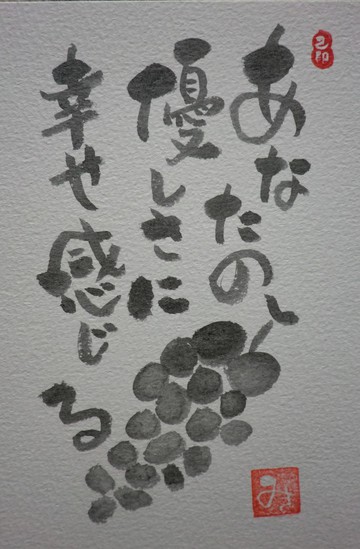 あなたの
優しさに
幸せ感じる